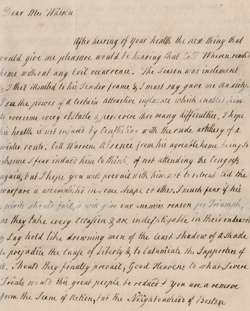 Dear Mrs Warren
After hearing of your health the next thing that
would give me pleasure would be hearing that Coll Warren reachd
home without any evil occurence. The Season was inclement
ill suited to his tender frame & I must say gave me anxiety.
the power of a certain attractive influence which enabled him
to overcome every obstacle & persevere thro many difficulties, I hope
his health is not injured by conflicting with the rude artillery of a
winter. Coll Warrens absence from his agreeable home being so
I fear induce him to think of not attending the Congress
again, but I hope you will prevail with him not to retreat till the
warfare is accomplishd in one shape or other, I much fear if his
should fail, it will give our enemies reason for Triumph,
as they take every occasion & are indefatigable in their endeavours
to Lay hold like drowning men of the least shadow of a shade
to prejudice the cause of Liberty & to calumniate the Supporters of
it. Should they finally prevail, Good Heavens to what Severe
Trials would this great people be reduced & you are a remove
from the Scene of Action, but the Neighbourhood of Boston